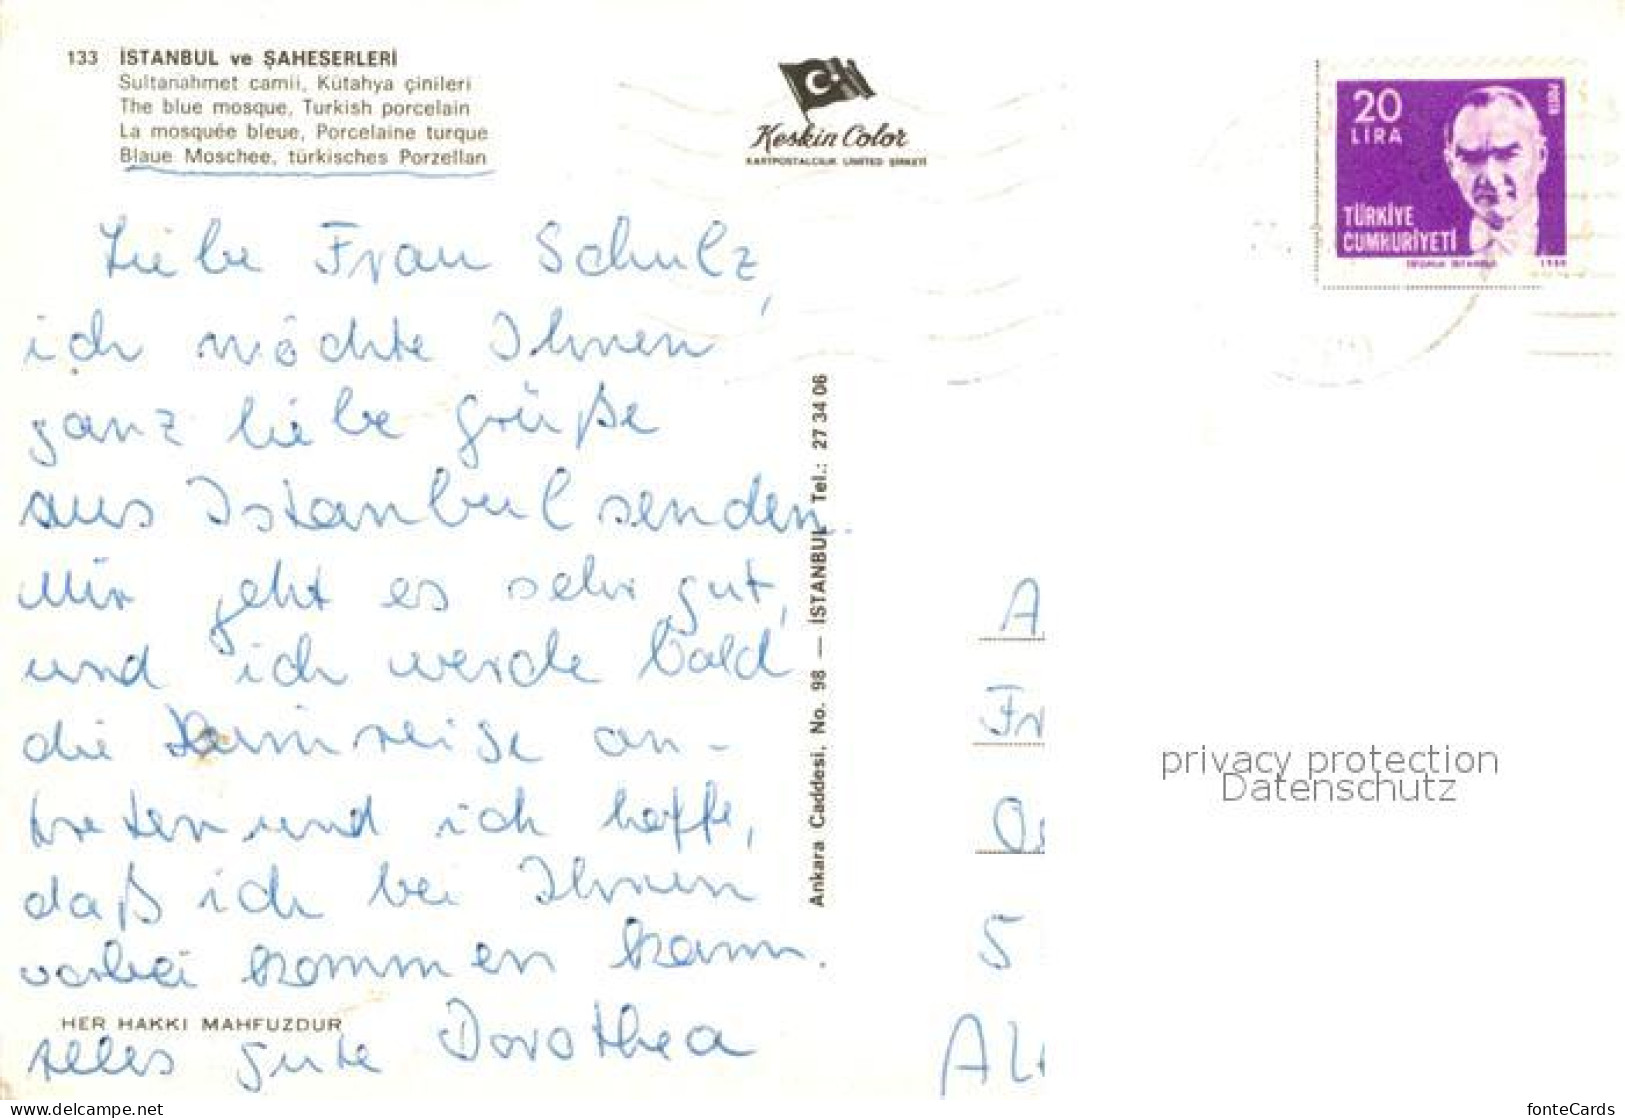 133 İSTANBUL ve ŞAHESERLERİ
Sultanahmet camii, Kütahya çinileri
The blue mosque, Turkish porcelain
La mosquée bleue, Porcelaine turque
Blaue Moschee, türkisches Porzellan
Keskin Color
KARTPOSTALCILIK LIMITED ŞİRKETİ
20
LİRA
POSTA
TÜRKİYE
CUMHURİYETİ
1980
Liebe Frau Schulz,
ich möchte Ihnen
ganz liebe Grüße
aus Istanbul senden.
Mir geht es sehr gut,
und ich werde bald
die Heimreise an-
treten und ich hoffe,
daß ich bei Ihnen
vorbei kommen kann.
Alles Gute Dorothea
HER HAKKI MAHFUZDUR
Ankara Caddesi, No. 98 — İSTANBUL Tel.: 27 34 06
A
Fr
5
privacy protection
Datenschutz
www.delcampe.net
fonteCards